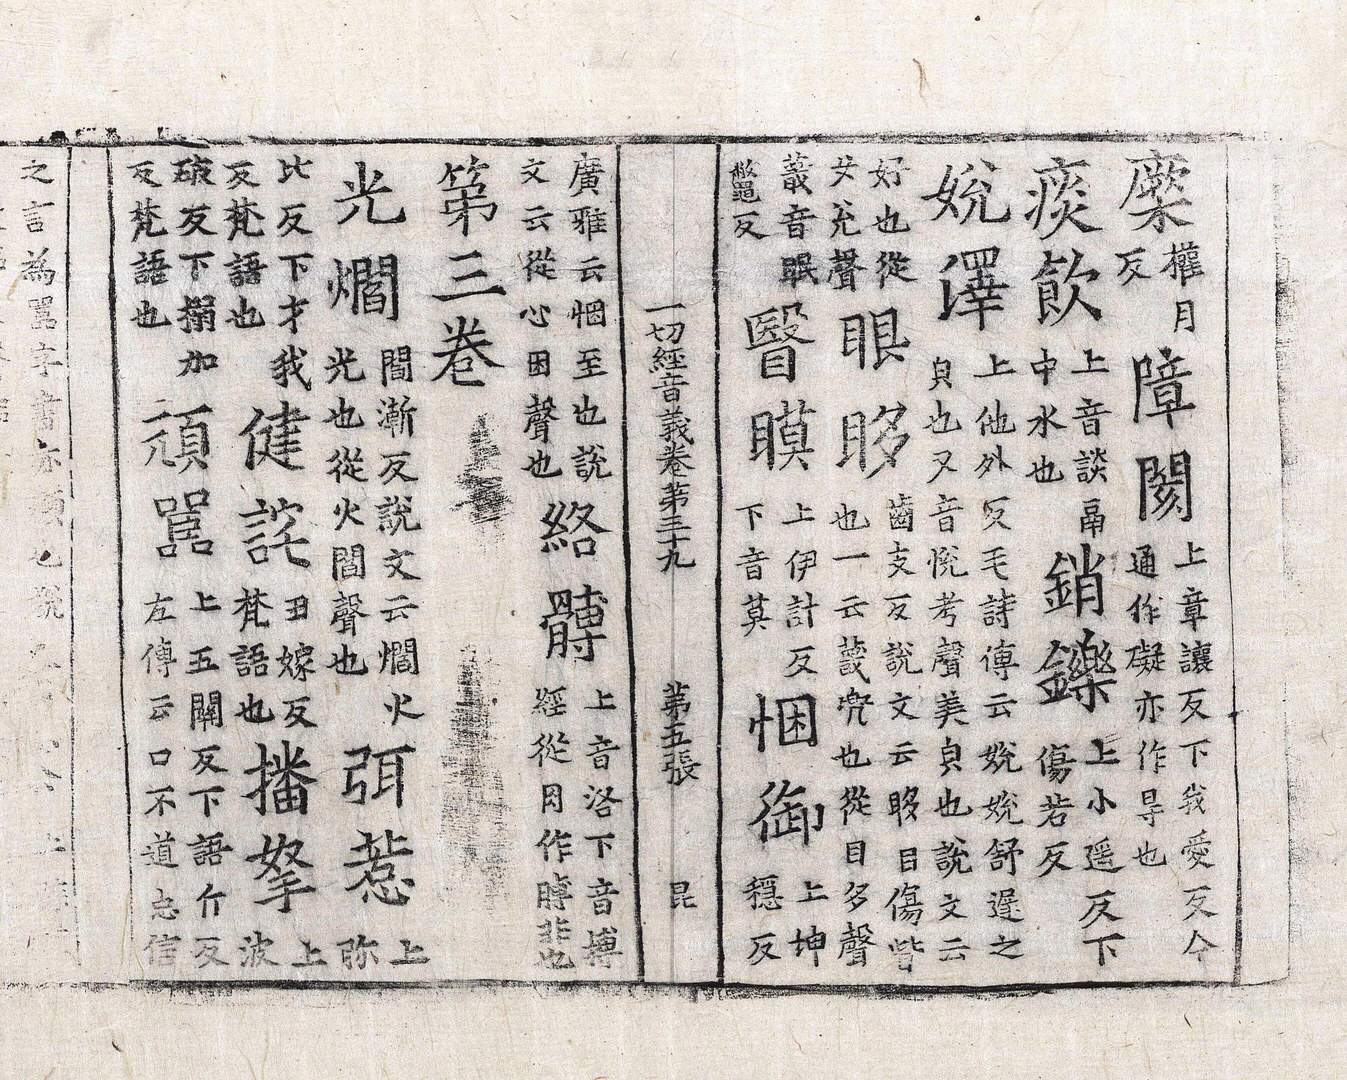 權月反障閡上章讓反下我愛反今通作礙亦作㝵也
痰飲上音談鬲中水也銷鑠上小遥反下傷若反
娧澤上他外反毛詩傳云娧娧舒遟之皃也又音悅考聲美皃也說文云
好也從女兊聲眼眵齒支反說文云眵目傷眥也一云䁾兠也從目多聲
䁾音眠鼈反瞖瞙上伊計反下音莫悃御上坤穩反
一切經音義卷第三十九 第五張 昆
廣雅云悃至也說文云從心困聲也絡髆上音洛下音博經從月作膊非也
第三卷
光爓閻漸反說文云爓火光也從火閻聲也弭惹上弥
比反下才我反梵語也健詫丑嫁反梵語也播拏上波
破反下搦加反梵語也頑嚚上五關反下語斤反左傳云口不道忠信
之言為嚚字書亦頑也說